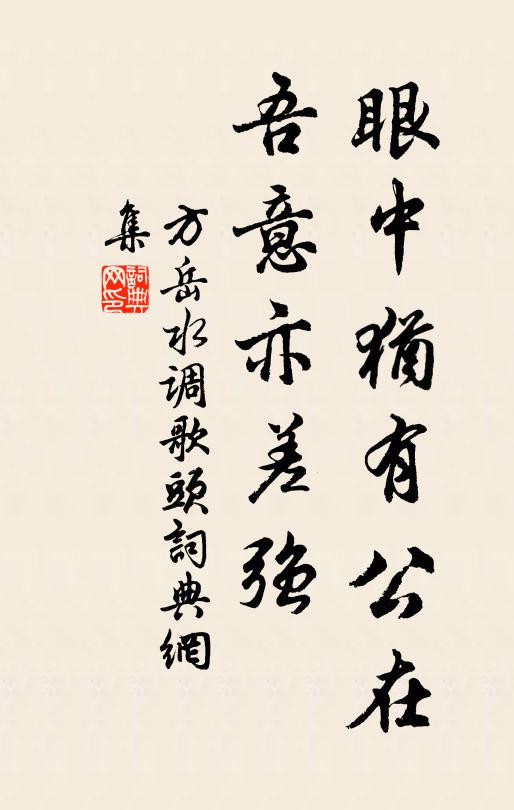 眼中猶有公在
吾意亦差強
方岳水调歌頭詞典網
集
詞典
网印